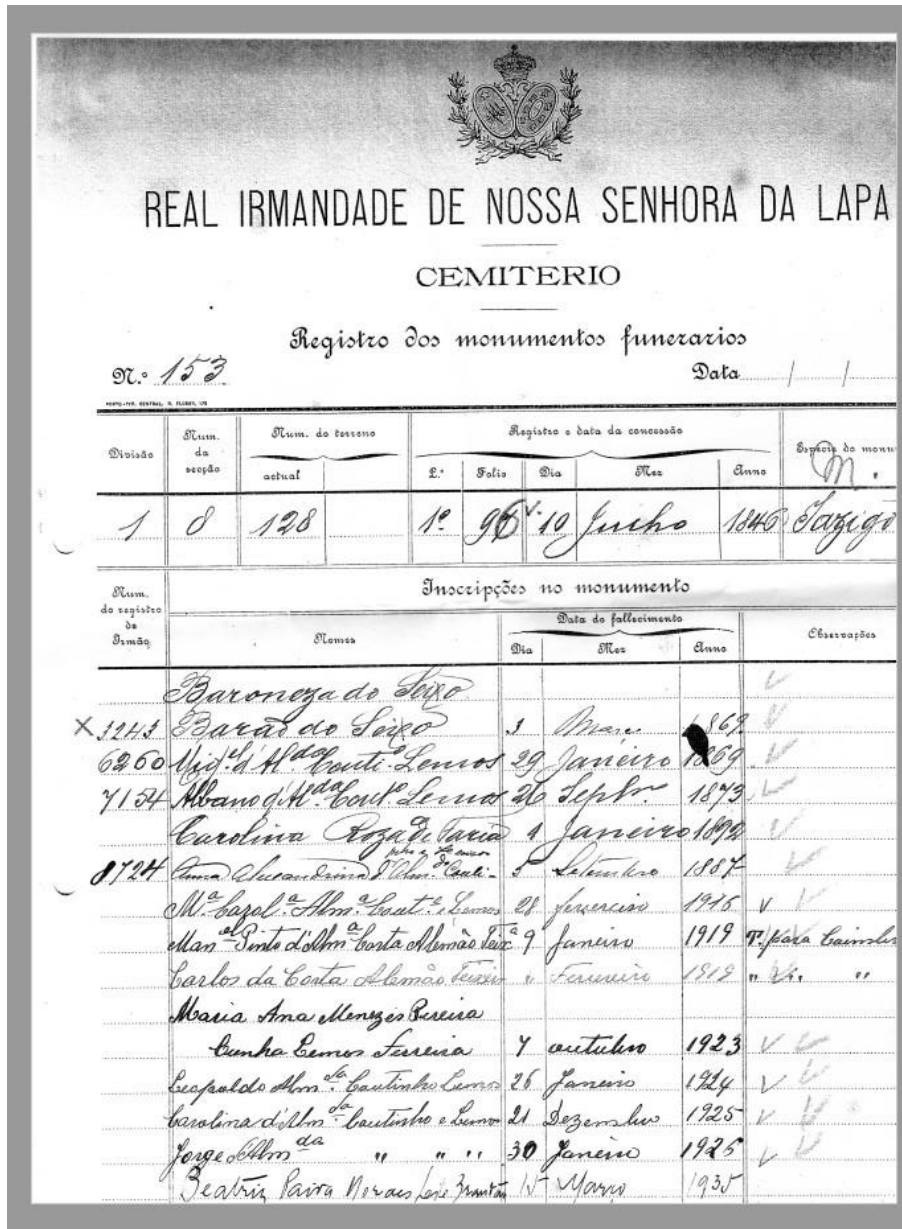 REAL IRMANDADE DE NOSSA SENHORA DA LAPA
CEMITERIO
Registro dos monumentos funerarios
N.º 153 Data / /
Divisão Num. da secção Num. do terreno Registro e data da concessão Especie do monu
actual L.º Folio Dia Mez Anno M.
1 8 128 1º 96 19 Junho 1846 Jazigo
Num. do registro de Irmão Inscripções no monumento
Nomes Data do fallecimento Observações
Dia Mez Anno
Baroneza do Seixo
X 3243 Barão do Seixo 3 1869
6260 Mig.el d'Al.da Couti.º Lemos 29 Janeiro 1869
7154 Albano d'Al.da Cout.º Lemos 26 Septbr.º 1873
Carolina Roza de Faria 4 Janeiro 1892
8724 Anna Alexandrina d'Alm.da Couti- 5 Setembro 1887
M.ª Carol.ª Alm.ª Cout.º e Lemos 28 fevereiro 1916 v
Man.el Pinto d'Alm.ª Costa Alemão Teix.ª 9 Janeiro 1919 T. para
Carlos da Costa Alemão Teixeira " Fevereiro 1919 " "
Maria Ana Menezes Pereira
Cunha Lemos Ferreira 7 outubro 1923 v
Leopoldo Alm.da Coutinho Lemos 26 Janeiro 1924 v
Carolina d'Alm.da Coutinho e Lemos 21 Dezembro 1925 v
Jorge d'Alm.da " " " 30 Janeiro 1926 v
Beatriz Paiva Moraes 15 Março 1935